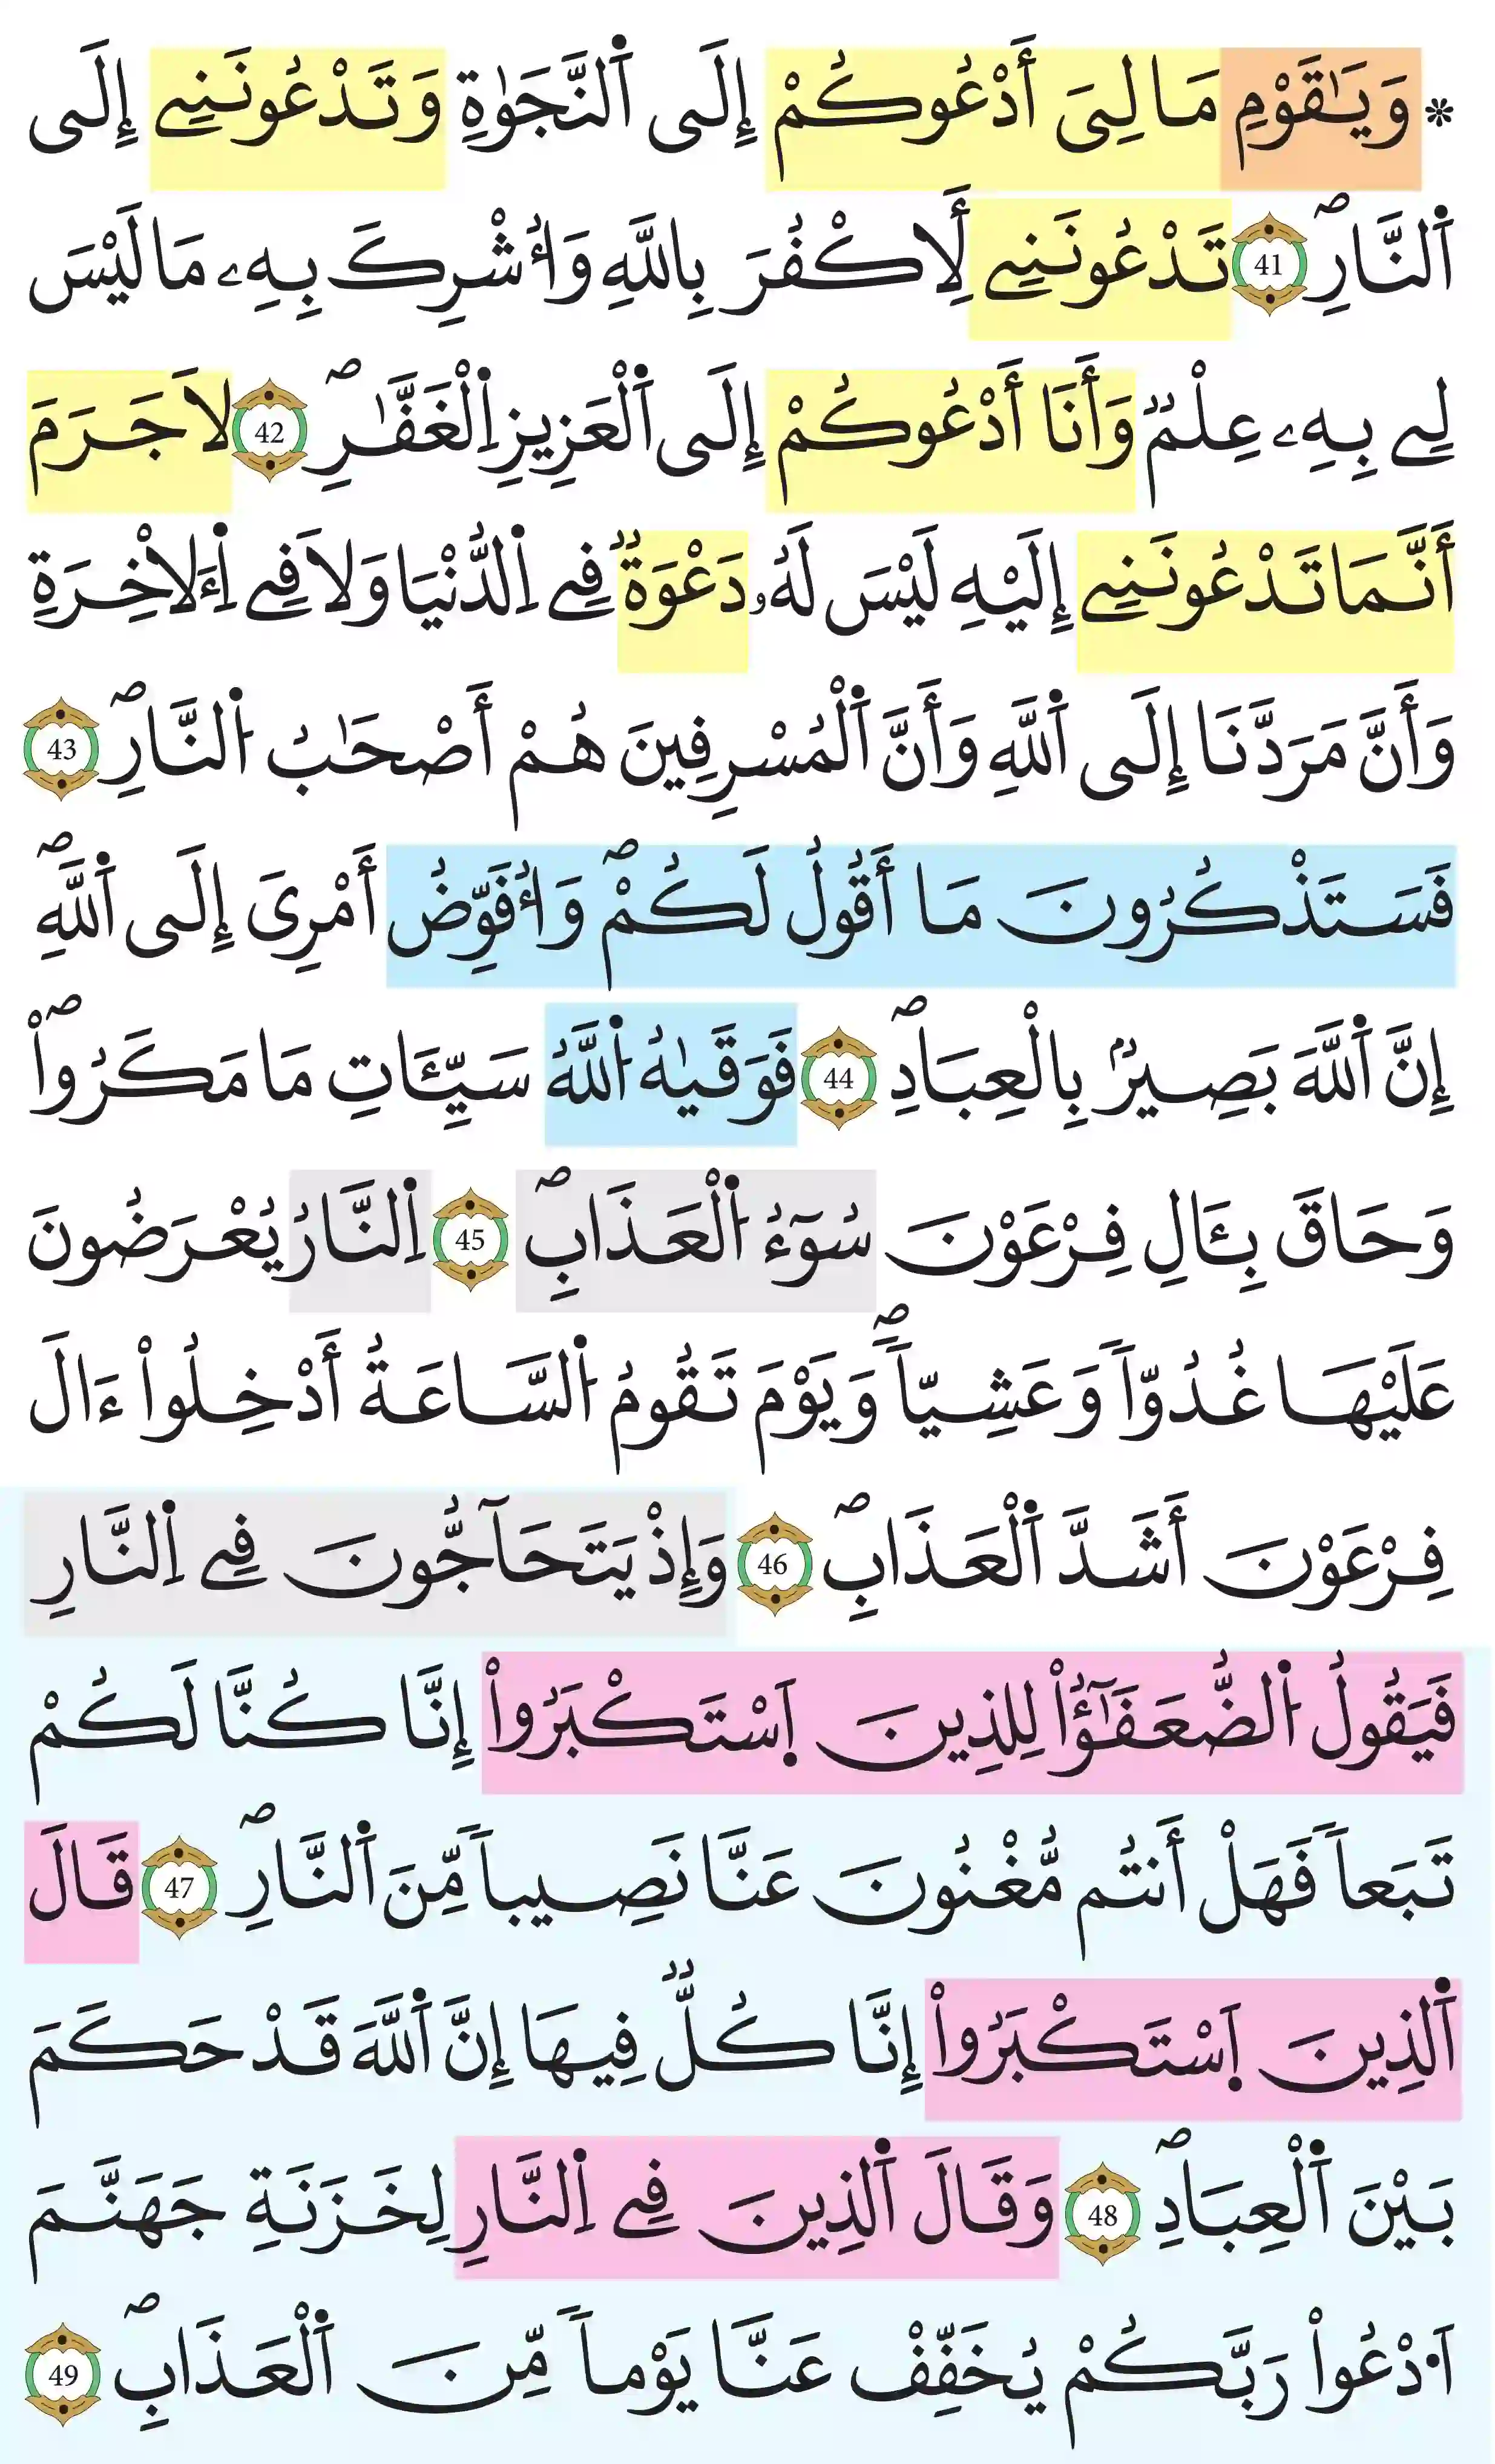 * وَيَٰقَوْمِ مَا لِىَ أَدْعُوكُمْ إِلَى اَ۬لنَّجَوٰةِ وَتَدْعُونَنِےٓ إِلَى
اَ۬لنَّارِۖ 41 تَدْعُونَنِے لِأَكْفُرَ بِاللَّهِ وَأُشْرِكَ بِهِۦ مَا لَيْسَ
لِے بِهِۦ عِلْمٞ وَأَنَا أَدْعُوكُمْ إِلَى اَ۬لْعَزِيزِ اِ۬لْغَفَّٰرِۖ 42 لَا جَرَمَ
أَنَّمَا تَدْعُونَنِے إِلَيْهِ لَيْسَ لَهُۥ دَعْوَةٞ فِے اِ۬لدُّنْيَا وَلَا فِے اِ۬لَأخِرَةِ
وَأَنَّ مَرَدَّنَا إِلَى اَ۬للَّهِ وَأَنَّ اَ۬لْمُسْرِفِينَ هُمْ أَصْحَٰبُ اُ۬لنَّارِۖ 43
فَسَتَذْكُرُونَ مَا أَقُولُ لَكُمْۖ وَأُفَوِّضُ أَمْرِىَ إِلَى اَ۬للَّهِۖ
إِنَّ اَ۬للَّهَ بَصِيرُۢ بِالْعِبَادِۖ 44 فَوَقَىٰهُ اُ۬للَّهُ سَيِّـَٔاتِ مَا مَكَرُواْۖ
وَحَاقَ بِـَٔالِ فِرْعَوْنَ سُوٓءُ اُ۬لْعَذَابِۖ 45 اِ۬لنَّارُ يُعْرَضُونَ
عَلَيْهَا غُدُوّاٗ وَعَشِيّاٗۖ وَيَوْمَ تَقُومُ اُ۬لسَّاعَةُ أَدْخِلُواْ ءَالَ
فِرْعَوْنَ أَشَدَّ اَ۬لْعَذَابِۖ 46 وَإِذْ يَتَحَآجُّونَ فِے اِ۬لنَّارِ
فَيَقُولُ اُ۬لضُّعَفَٰٓؤُاْ لِلذِينَ اَ۪سْتَكْبَرُواْ إِنَّا كُنَّا لَكُمْ
تَبَعاٗ فَهَلْ أَنتُم مُّغْنُونَ عَنَّا نَصِيباٗ مِّنَ اَ۬لنَّارِۖ 47 قَالَ
اَ۬لذِينَ اَ۪سْتَكْبَرُواْ إِنَّا كُلّٞ فِيهَا إِنَّ اَ۬للَّهَ قَدْ حَكَمَ
بَيْنَ اَ۬لْعِبَادِۖ 48 وَقَالَ اَ۬لذِينَ فِے اِ۬لنَّارِ لِخَزَنَةِ جَهَنَّمَ
اَ۟دْعُواْ رَبَّكُمْ يُخَفِّفْ عَنَّا يَوْماٗ مِّنَ اَ۬لْعَذَابِۖ 49